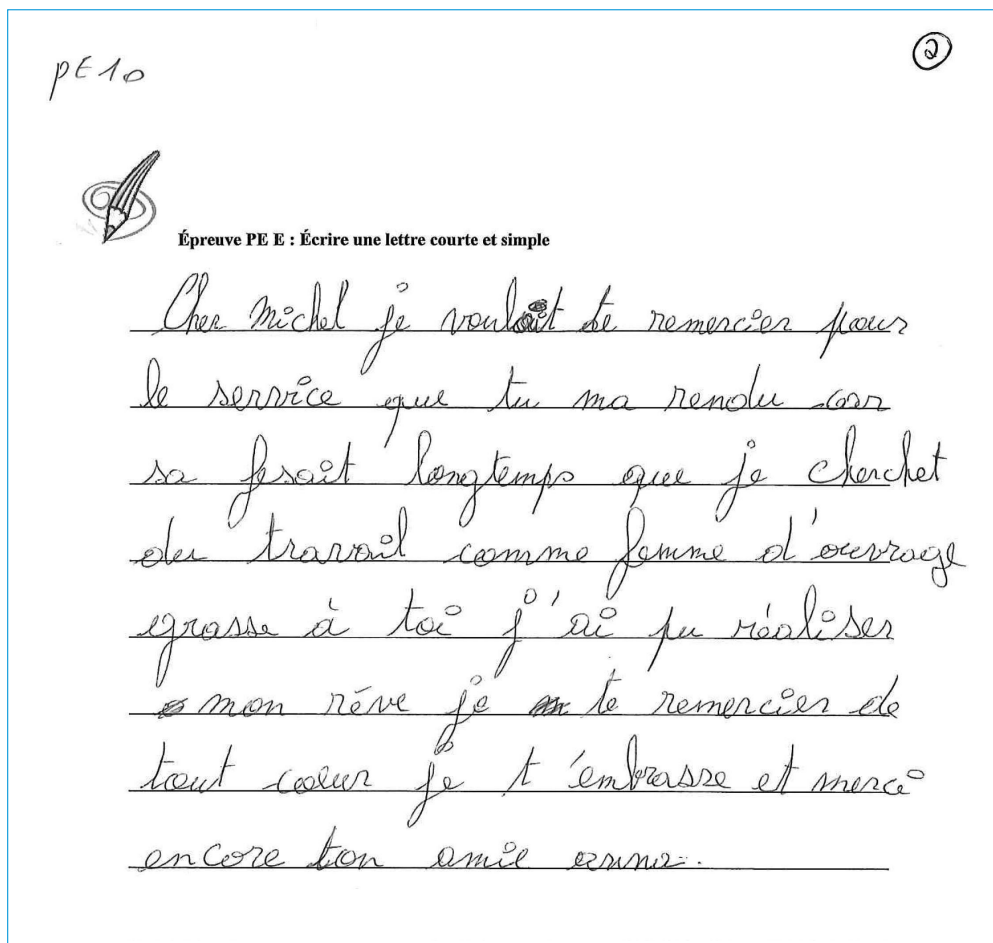 ②
PE 10
Épreuve PE E : Écrire une lettre courte et simple
Cher Michel je voulait te remercier pour
le service que tu ma rendu car
sa fesait longtemps que je cherchet
du travail comme femme d'ouvrage
grasse à toi j'ai pu réaliser
mon rêve je te remercier de
tout cœur je t'embrasse et merci
encore ton amie